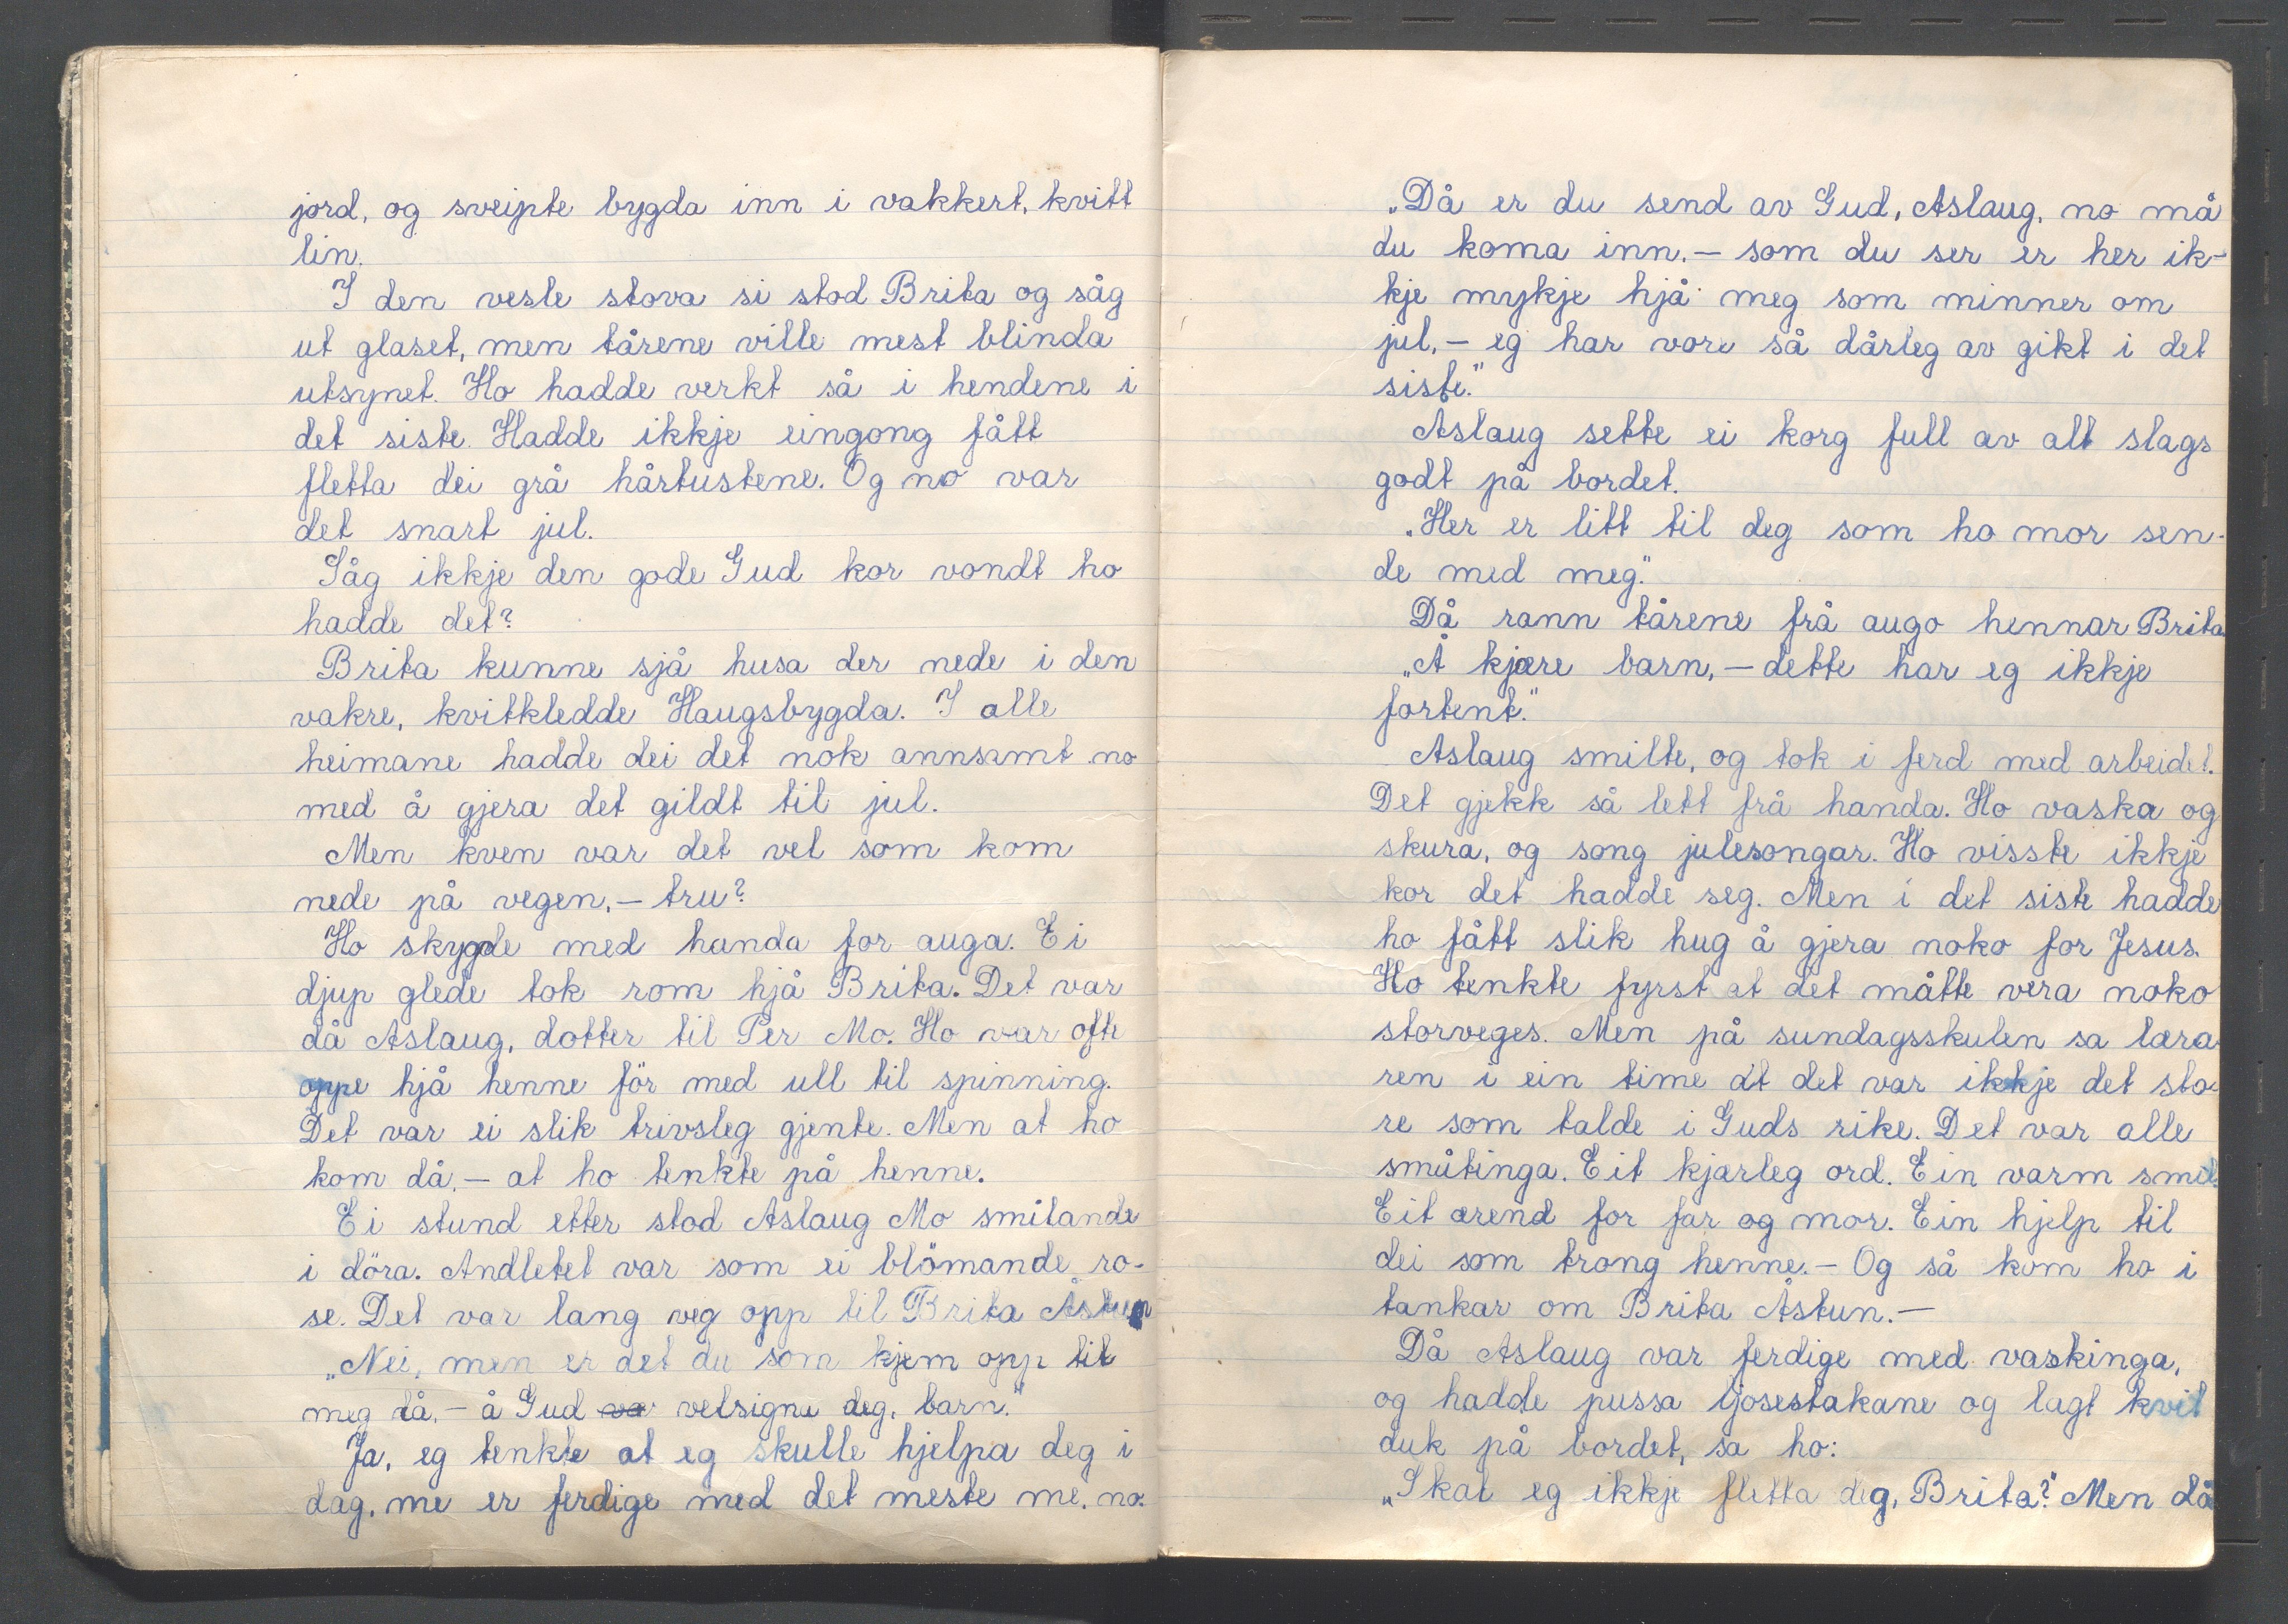 jord, og sveipte bygda inn i vakkert, kvitt
lin.
I den vesle stova si stod Brita og såg
ut glaset, men tårene ville mest blinda
utsynet. Ho hadde verkt så i hendene i
det siste. Hadde ikkje eingong fått
fletta dei grå hårtustene. Og no var
det snart jul.
Såg ikkje den gode Gud kor vondt ho
hadde det?
Brita kunne sjå husa der nede i den
vakre, kvitkledde Haugsbygda. I alle
heimane hadde dei det nok annsamt no
med å gjera det gildt til jul.
Men kven var det vel som kom
nede på vegen, – tru?
Ho skygde med handa for auga. Ei
djup glede tok rom hjå Brita. Det var
då Aslaug, dotter til Per Mo. Ho var ofte
oppe hjå henne för med ull til spinning.
Det var ei slik trivsleg gjente. Men at ho
kom då, – at ho tenkte på henne.
Ei stund etter stod Aslaug Mo smilande
i döra. Andletet var som ei blömande ro-
se. Det var lang veg opp til Brita Åstun
„Nei, men er det du som kjem opp til
meg då, – å Gud va velsigne deg, barn."
Ja, eg tenkte at eg skulle hjelpa deg i
dag, me er ferdige med det meste me, no.
„Då er du send av Gud, Aslaug, no må
du koma inn. – som du ser er her ik-
kje mykje hjå meg som minner om
jul, – eg har vore så dårleg av gikt i det
siste."
Aslaug sette ei korg full av alt slags
godt på bordet.
„Her er litt til deg som ho mor sen-
de med meg."
Då rann tårene frå augo hennar Brita
„Å kjære barn, – dette har eg ikkje
fortent."
Aslaug smilte, og tok i ferd med arbeidet.
Det gjekk så lett frå handa. Ho vaska og
skura, og song julesongar. Ho visste ikkje
kor det hadde seg. Men i det siste hadde
ho fått slik hug å gjera noko for Jesus.
Ho tenkte fyrst at det måtte vera noko
storveges. Men på sundagsskulen sa læra-
ren i ein time at det var ikkje det sto-
re som talde i Guds rike. Det var alle
småtinga. Eit kjærleg ord. Ein varm smil.
Eit ærend for far og mor. Ein hjelp til
dei som trong henne. – Og så kom ho i
tankar om Brita Åstun. –
Då Aslaug var ferdige med vaskinga,
og hadde pussa ljosestakane og lagt kvit
duk på bordet, sa ho:
„Skal eg ikkje fletta deg, Brita?" Men då